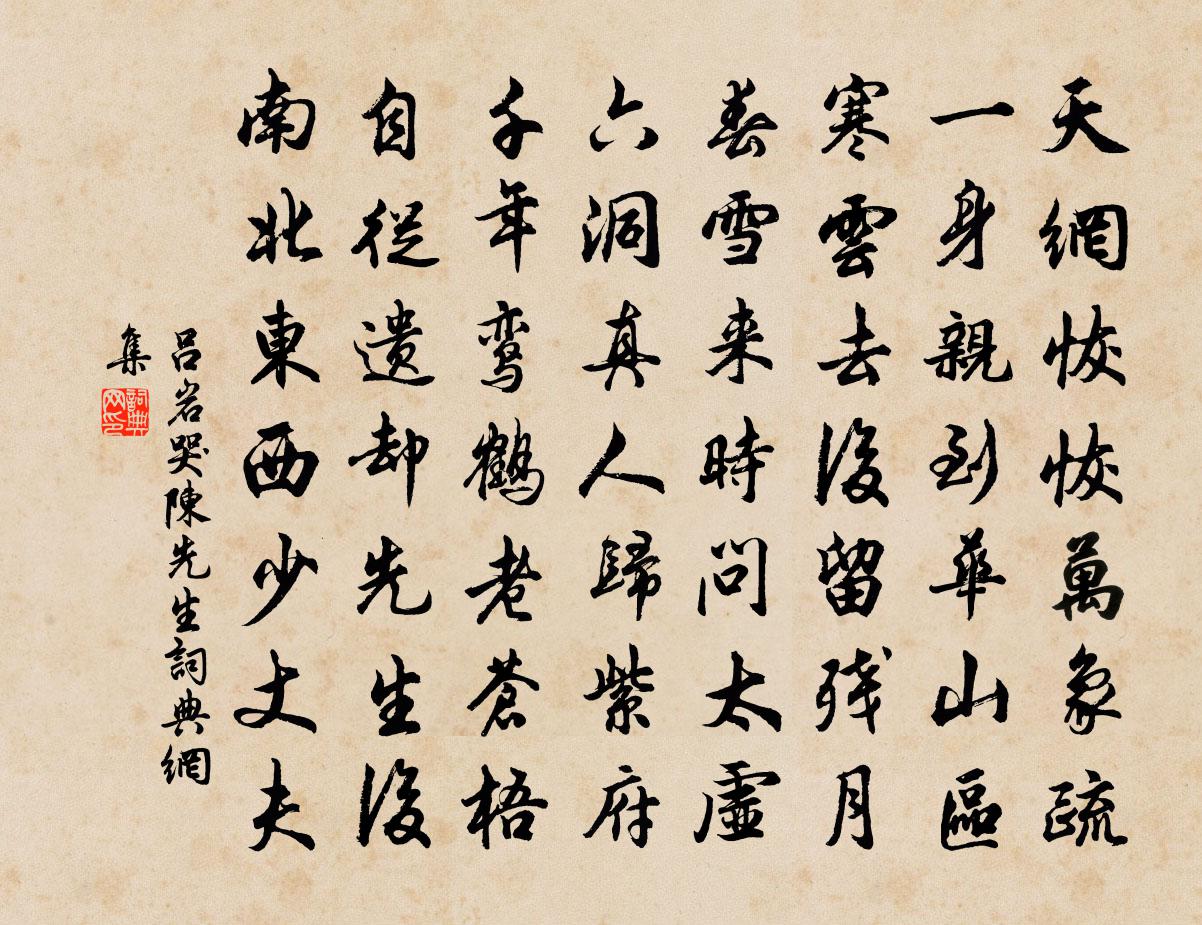 天網恢恢萬象疏
一身親到華山區
寒雲去後留残月
春雪来時問太虛
六洞真人歸紫府
千年鸾鶴老蒼梧
自從遺却先生後
南北東西少丈夫
呂岩哭陳先生詞典網
集
詞典
网印